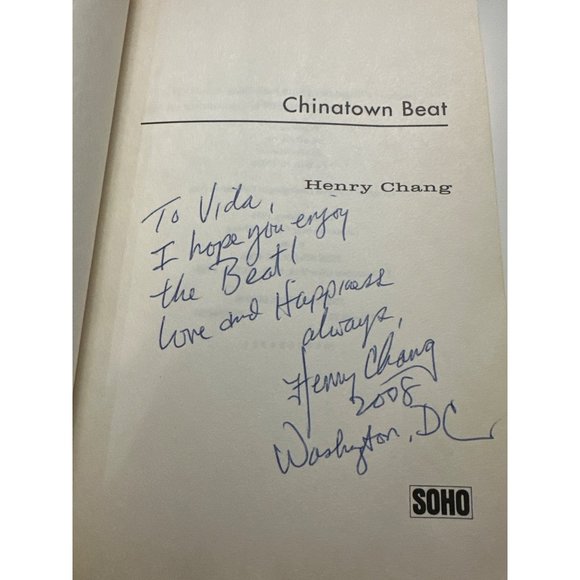 Chinatown Beat
Henry Chang
To Vida,
I hope you enjoy
the Beat!
Love and Happiness
always,
Henry Chang
2008
Washington, DC
SOHO